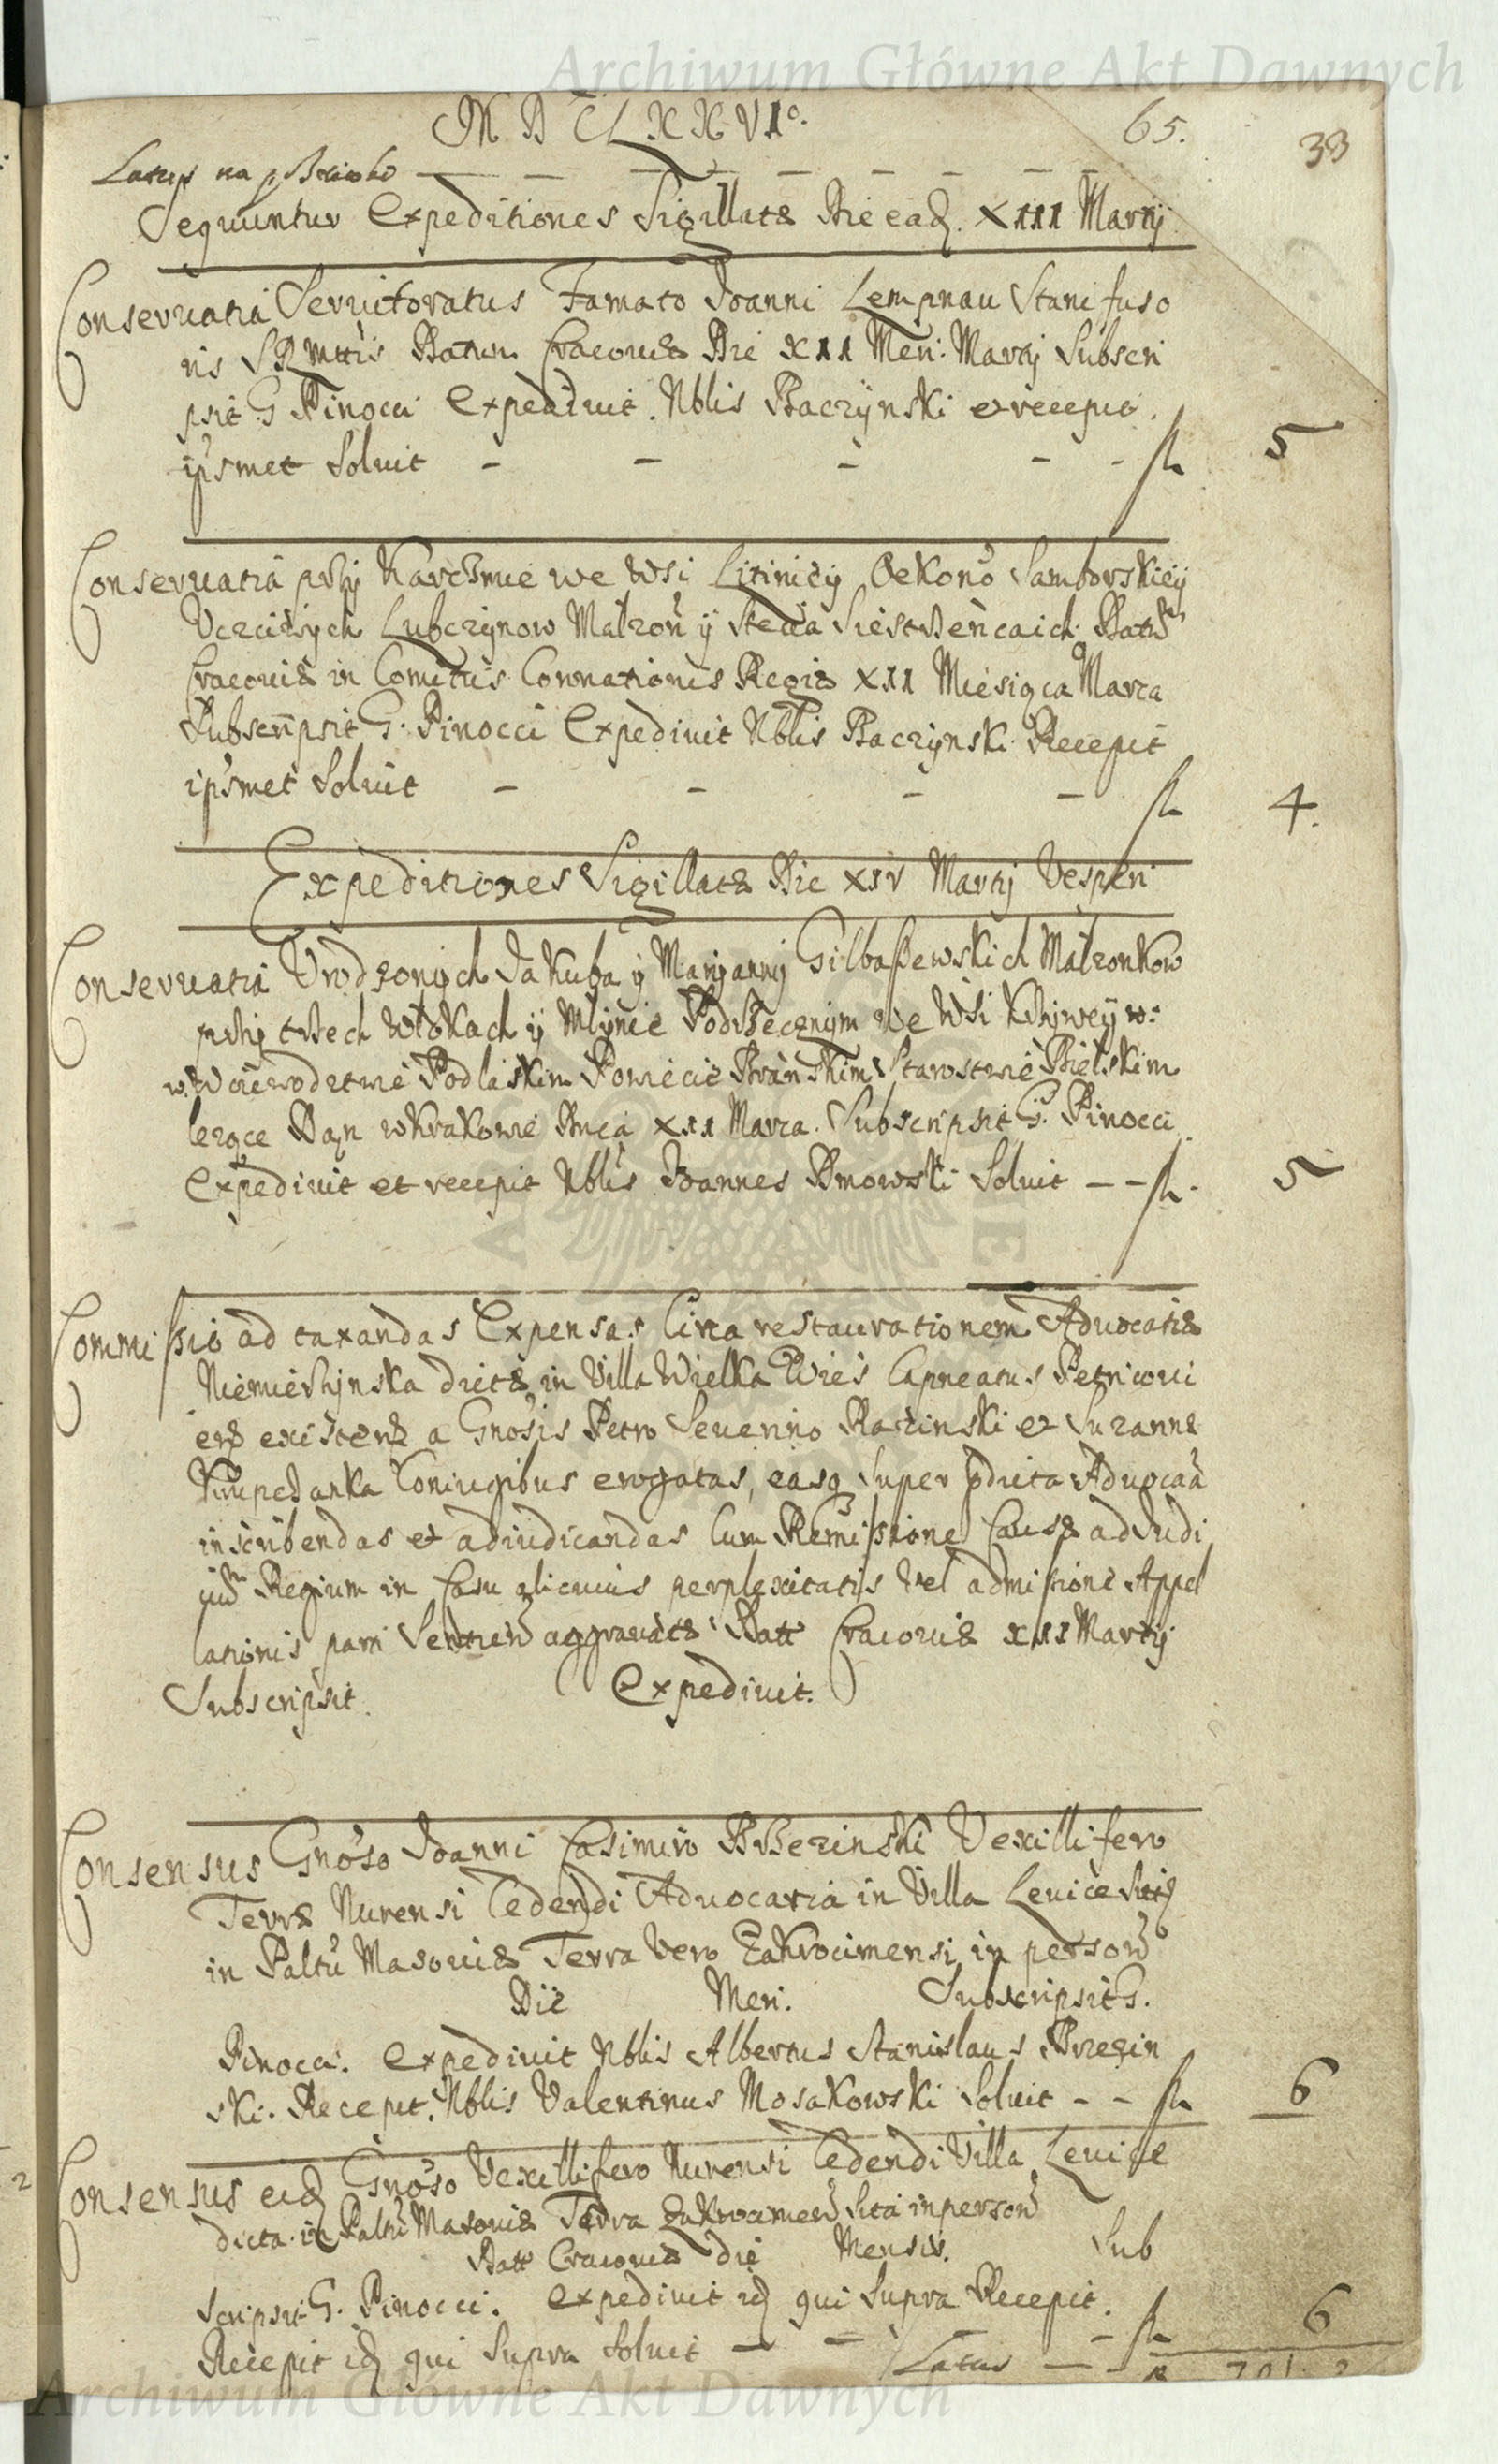 Archiwum Główne Akt Dawnych
M D C L X X V Iº. 65. 33
Latus na
Sequuntur Expeditiones Sigillatæ Die ead. XIII Martij
Conservatia Servitoratus Famato Joanni Lempnau Stanifuso
ris S R Mttis Datum Cracoviæ Die XII Men: Martij Subscri
psit G Pinocci Expedivit. Nblis Baczÿnski et recepit.
ipsmet Soluit - - - - - fl 5
Conservatia przÿ Karczmie we Wsi Litinicÿ Oekonō Samborskieÿ
Uczciwÿch Lubczÿnow Małzon ÿ Stecia Siestrzencaich Datū
Cracoviæ in Comitiis Coronationis Regiæ XII Miesiąca Marca
Subscripsit G. Pinocci Expedivit Nblis Baczÿnski Recepit
ipsmet Soluit - - - - fl 4.
Expeditiones Sigillatæ Die XIV Martij Vesperi
Conservatia Urodzonÿch Jakuba ÿ Marÿannÿ Gilbaszewskich Małzonkow
przÿ trzech Włokach ÿ Młÿnie Podrzecznÿm we Wsi Krzÿweÿ w:
w Woiewodztwie Podlaskim Powiecie Branskim Starostwie Bielskim
lezące Dan w Krakowie Dnia XII Marca. Subscripsit G. Pinocci
Expedivit et recepit Nblis Joannes Dmowski Soluit - - fl. 5
Commissio ad taxandas Expensas Circa restaurationem Advocatiæ
Niemierzÿnska dictæ in Villa Wielka Wies Capneatus Petricovi
en existen a Gnosis Petro Severino Raczinski et Suzannæ
Coniugibus erogatas, easq super pdicta Advocaā
inscribendas et adiudicandas Cum Remissione Causæ ad Judi
ciū Regium in Casu alicuius perplexitatis vel admissione Appel
lationis parti Sententiā aggravatæ Datt Cracoviæ XII Martij
Subscripsit. Expedivit.
Consensus Gnoso Joanni Casimiro Brzezinski Vexillifero
Terræ Nurensi Cedendi Advocatia in Villa Levice
in Paltu Masoviæ Terra vero Zakrocimensi in person
Die Men. Subscripsit G.
Pinocci. Expedivit Nblis Albertus Stanislaus Brzezin
ski. Recepit. Nblis Valentinus Mosakowski Soluit - - fl 6
Consensus eid Gnoso Vexillifero Nurensi Cedendi Villa Levice
dicta in Paltu Masoviæ Terra Zakrocimen Sita in person
Datt Cracoviæ die Mensis. Sub
scripsit G. Pinocci. Expedivit id qui Supra Recepit.
Recepit id qui Supra Soluit - - - fl 6
Latus
Archiwum Główne Akt Dawnych